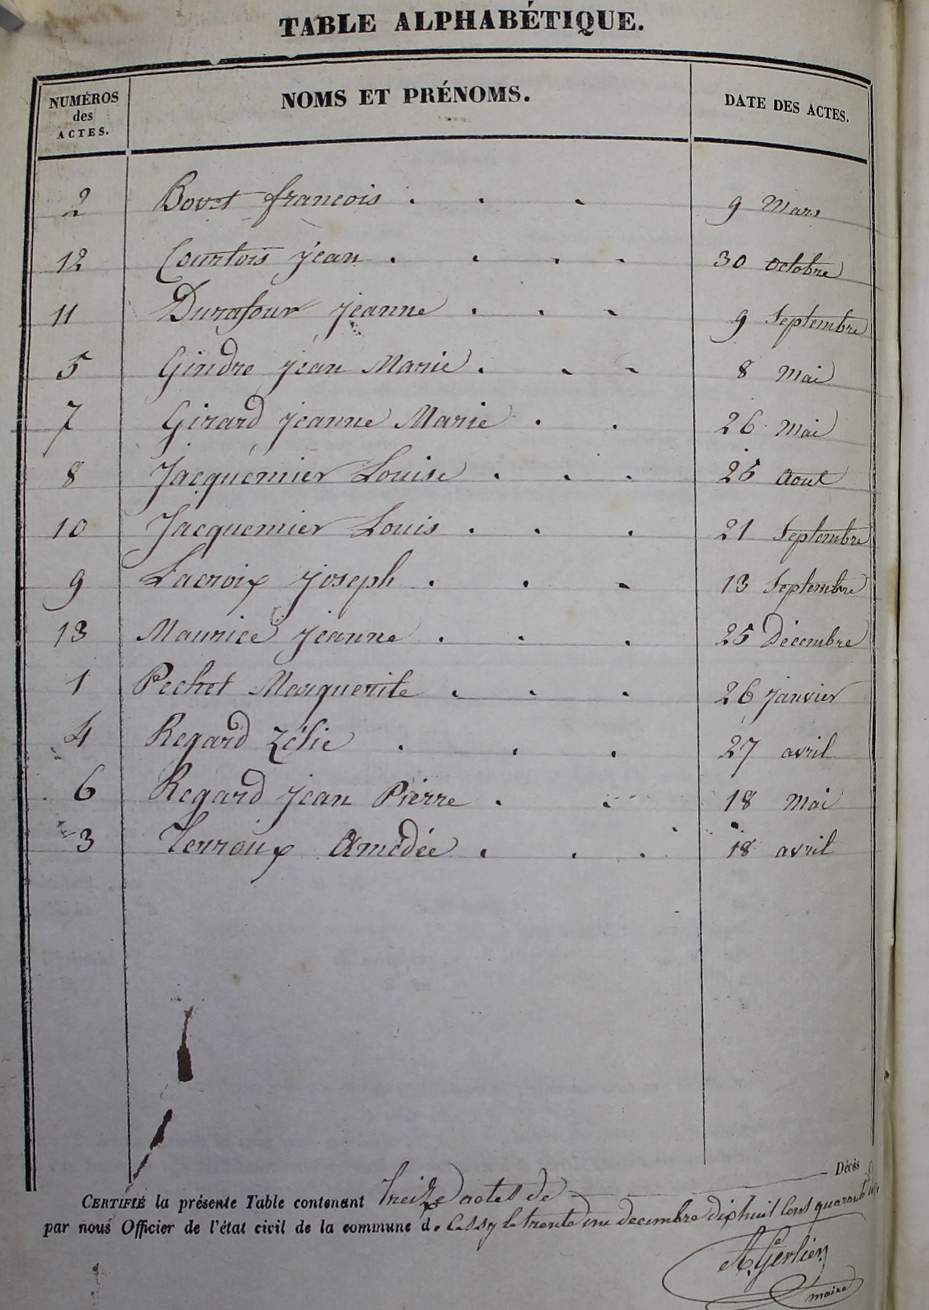 TABLE ALPHABÉTIQUE.
NUMÉROS des ACTES. NOMS ET PRÉNOMS. DATE DES ACTES.
2 Bovet francois . . . 9 Mars
12 Courtois jean . . . . 30 octobre
11 Durafour jeanne . . . 9 Septembre
5 Gindre jean Marie . . . 8 mai
7 Girard jeanne Marie . . 26 mai
8 Jacquemier Louise . . . 25 Aout
10 Jacquemier Louis . . . 21 Septembre
9 Lacroix joseph . . . 13 Septembre
13 Maurice jeanne . . . 25 Décembre
1 Pechet Marguerite . . . 26 janvier
4 Regard Zélie . . . 27 avril
6 Regard jean Pierre . . 18 mai
3 Terroux Amédée . . . 18 avril
CERTIFIÉ la présente Table contenant treize actes de Décès
par nous Officier de l'état civil de la commune de Cessy le trente un decembre dix huit cent quarante
A. Gerlier
maire